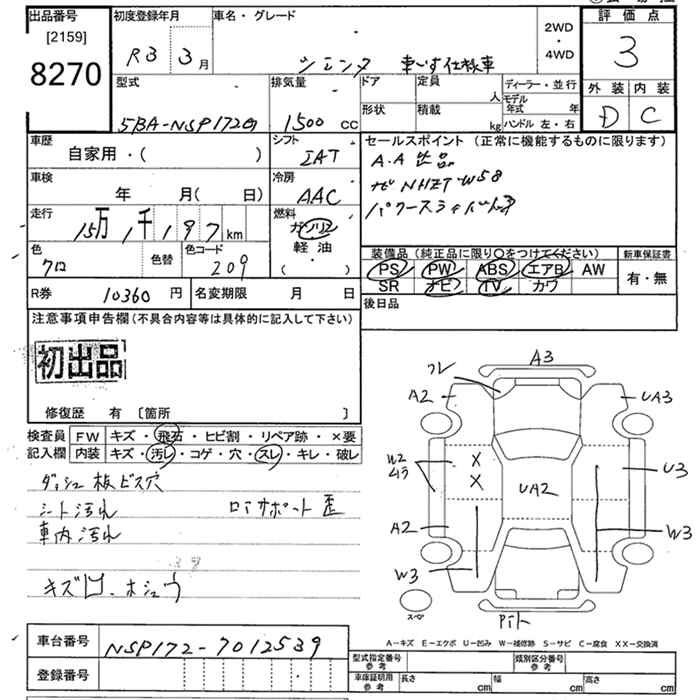 出品番号 初度登録年月 車名・グレード 2WD・4WD 評価点
[2159]
8270
R3 3月 シエンタ 車いす仕様車 3
外装 内装
D C
型式 排気量 ドア 定員 人 ディーラー・並行
形状 積載 kg モデル年式 年
ハンドル 左・右
5BA-NSP172G 1500 CC
車歴 シフト セールスポイント (正常に機能するものに限ります)
自家用・( ) IAT A.A出品
車検 冷房 ナビ NHZT-W58
年 月( 日) AAC パワースライドドア
走行 燃料
15万1千197km ガソリン
軽油
( )
色 色替 色コード 装備品 (純正品に限り○をつけてください) 新車保証書
クロ 209 PS PW ABS エアB AW 有・無
SR ナビ TV カワ
R券 10360円 名変期限 月 日 後日品
注意事項申告欄(不具合内容等は具体的に記入して下さい)
初出品
修復歴 有 [箇所 ]
検査員 FW キズ・飛石・ヒビ割・リペア跡・×要
記入欄 内装 キズ・汚レ・コゲ・穴・スレ・キレ・破レ
ダッシュ板ビス穴
シート汚れ ロアサポート歪
車内汚れ
キズ凹、ホシュウ
フレ A3
A2 UA3
W2 X U3
ムラ X UA2
A2 W3
W3
スペア Pゲート
A-キズ E-エクボ U-凹み W-補修跡 S-サビ C-腐食 XX-交換済
車台番号 NSP172-7012539 型式指定番号 参考 類別区分番号 参考
登録番号 車庫証明用 参考 長さ cm 幅 cm 高さ cm